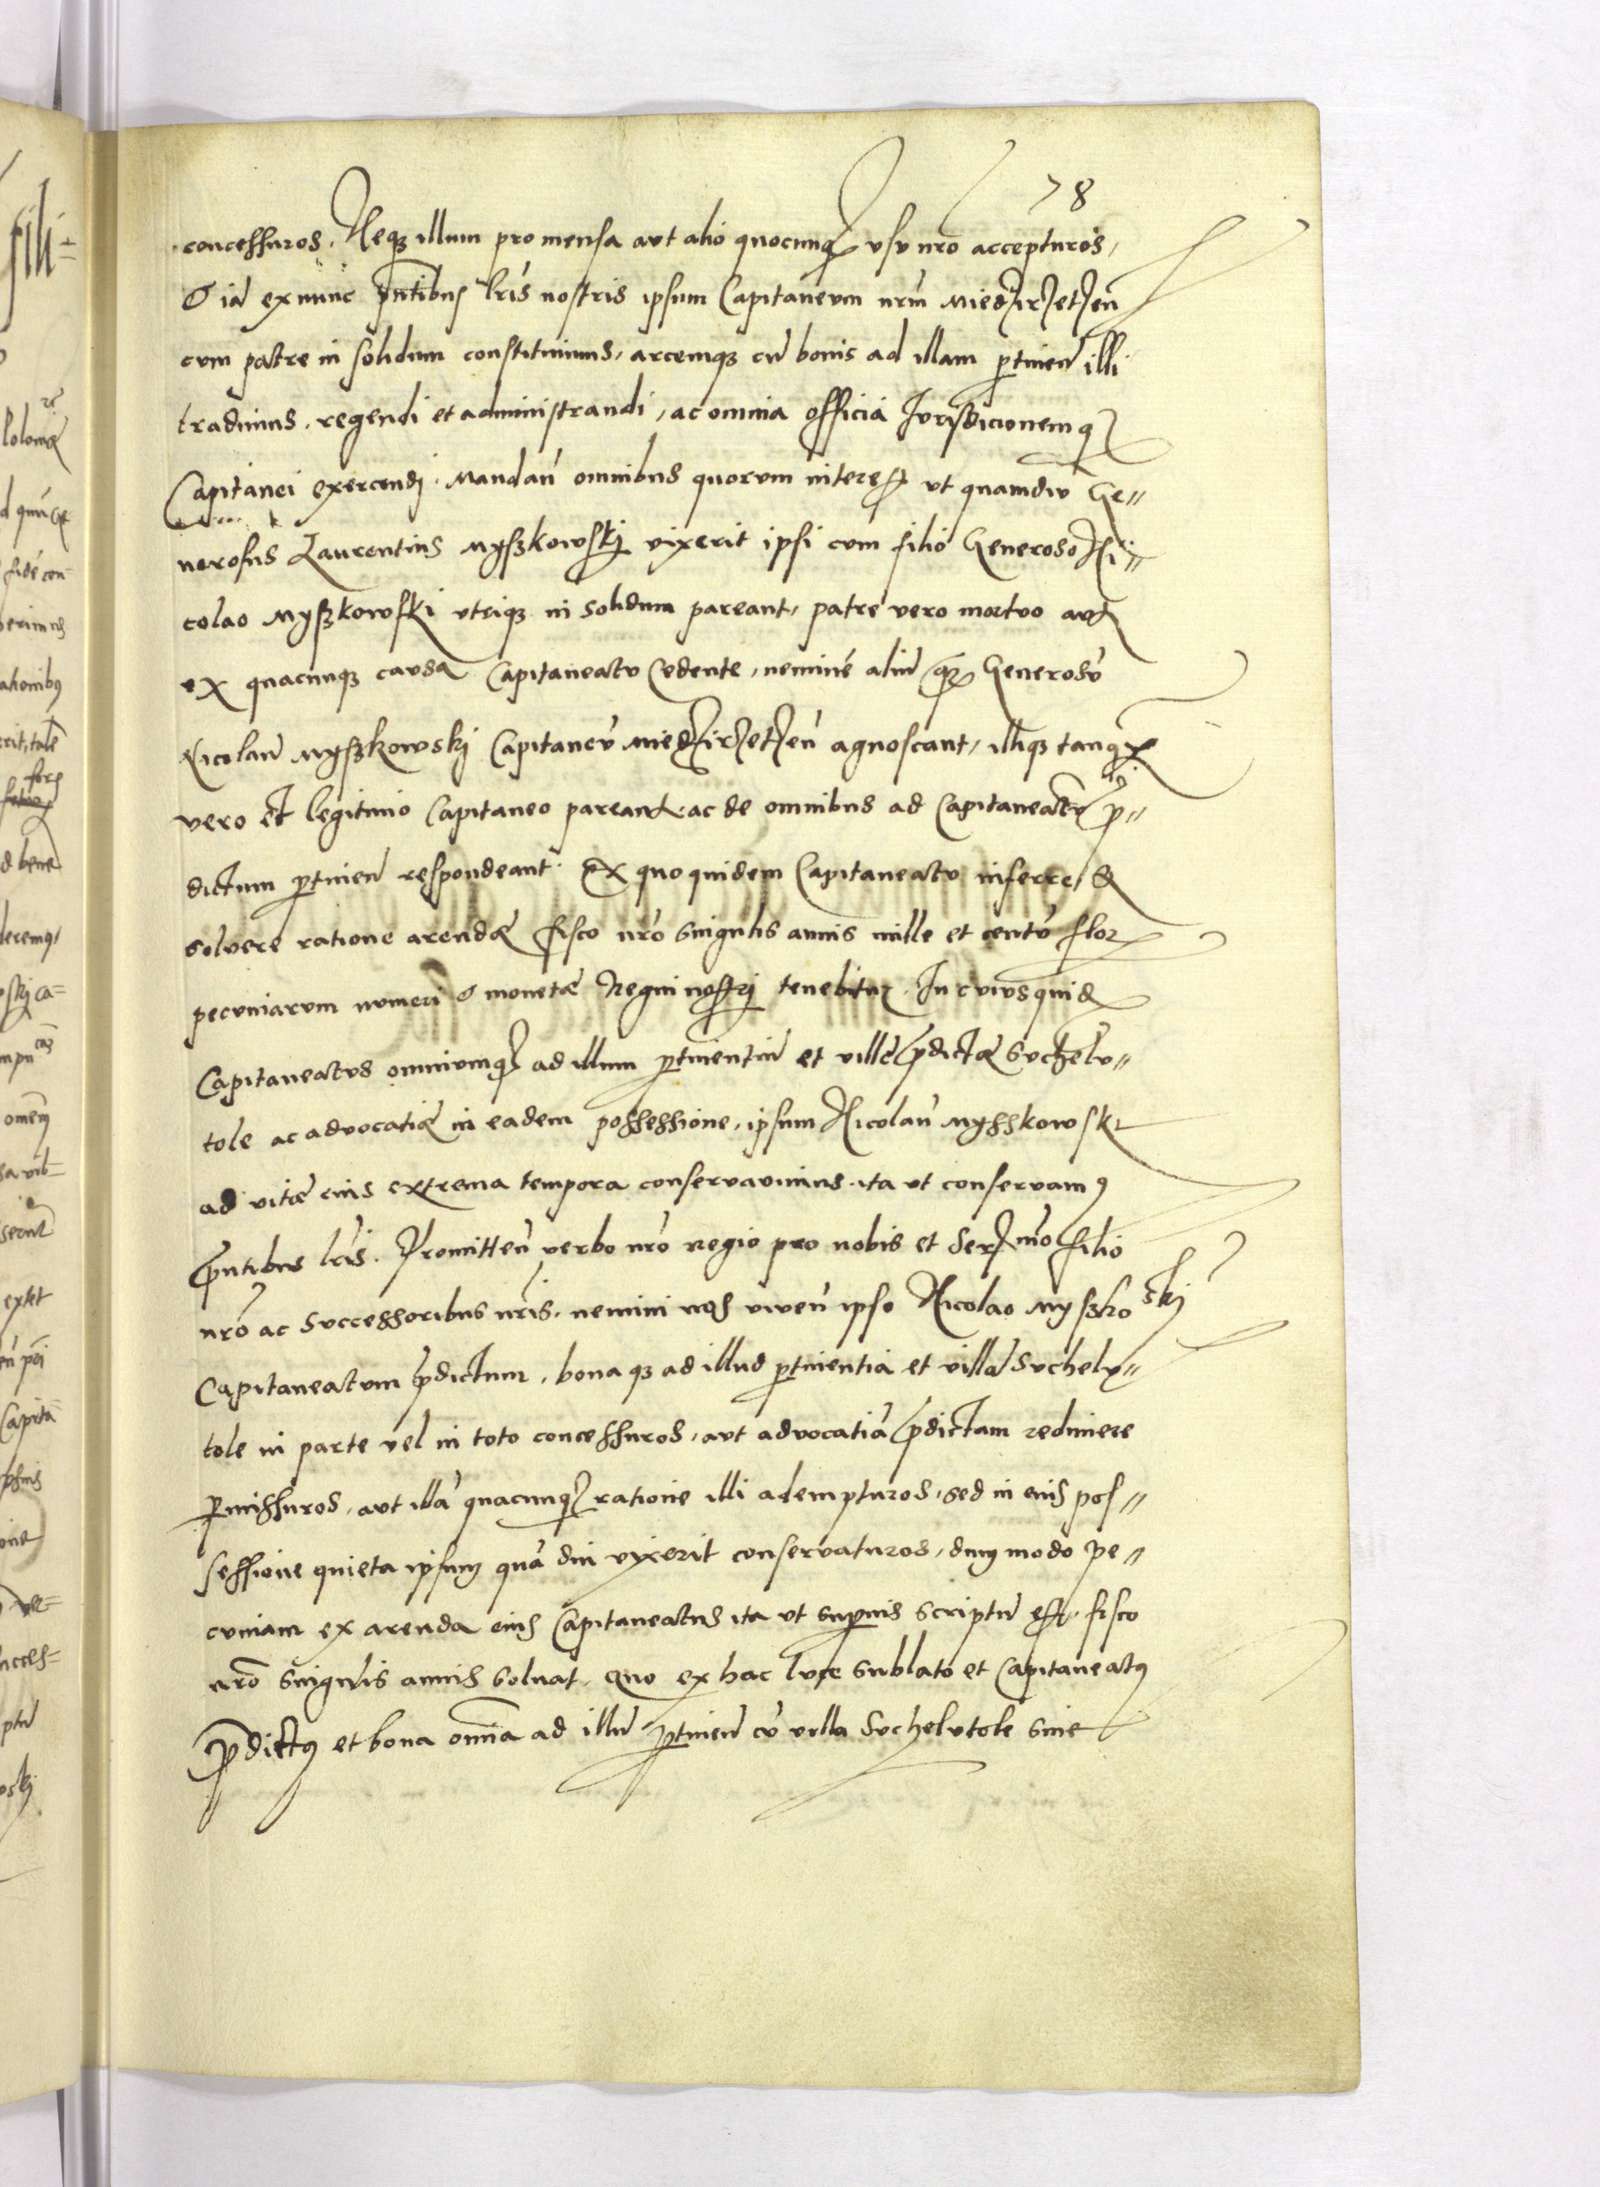 78
concessuros. Neqꝫ illum pro mensa aut alio quocunqꝫ usu nr̄o accepturos,
& iā ex nunc pn̄tibus lr̄is nostris ipsum Capitaneum nr̄m Miedzirzeczeń
cum patre in solidum constituimus, arcemqꝫ cū bonis ad illam ꝑtineñ illi
tradimus, regendi et administrandi, ac omnia officia Iurisdicionemqꝫ
Capitanei exercendi. Mandañ omnibus quorum interest ut quamdiu Ge=
nerosus Laurentius Myszkowskj vixerit ipsi cum filio Generoso Ni=
colao Myszkowski utriqꝫ in solidum pareant, patre vero mortuo aut
ex quacunqꝫ causa Capitaneatu cedente, neminē aliū qꝫ Generosū
Nicolaū Myszkowskj Capitaneū Miedzirzeczeń agnoscant, illiqꝫ tanqꝫ
vero et legitimo Capitaneo pareant, ac de omnibus ad Capitaneatū p̄=
dictum ꝑtineñ respondeant. Ex quo quidem Capitaneatu inferre, &
solvere ratione arendæ fisco nr̄o singulis annis mille et centū flor
pecuniarum numeri & monetæ Regni nostrj tenebitur. In cuius quid
Capitaneatus omniumqꝫ ad illum ꝑtinentiū et villæ p̄dictæ Suchelu=
tole ac advocatiæ in eadem possessione, ipsum Nicolaū Mysskowski
ad vitæ eius extrema tempora conservavimus, ita ut conservamꝰ
p̄ntibus lr̄is. Promitteñ verbo nr̄o regio pro nobis et Serᵐᵒ filio
nr̄o ac successoribus nr̄is, nemini nos viveñ ipso Nicolao Myszkoskj
Capitaneatum p̄dictum, bonaqꝫ ad illud ꝑtinentia et villā Suchelu=
tole in parte vel in toto concessuros, aut advocatiā p̄dictam redimere
ꝑmissuros, aut illā quacunqꝫ ratione illi adempturos, sed in eius pos=
sessione quieta ipsum quā diu vixerit conservaturos, dummodo pe=
cuniam ex arenda eius Capitaneatus ita ut suꝑius scriptū est, fisco
nr̄o singulis annis solvat. Quo ex hac luce sublato et Capitaneatꝰ
p̄dictꝰ et bona om̄ia ad illū ꝑtineñ cū villa Suchelutole sine